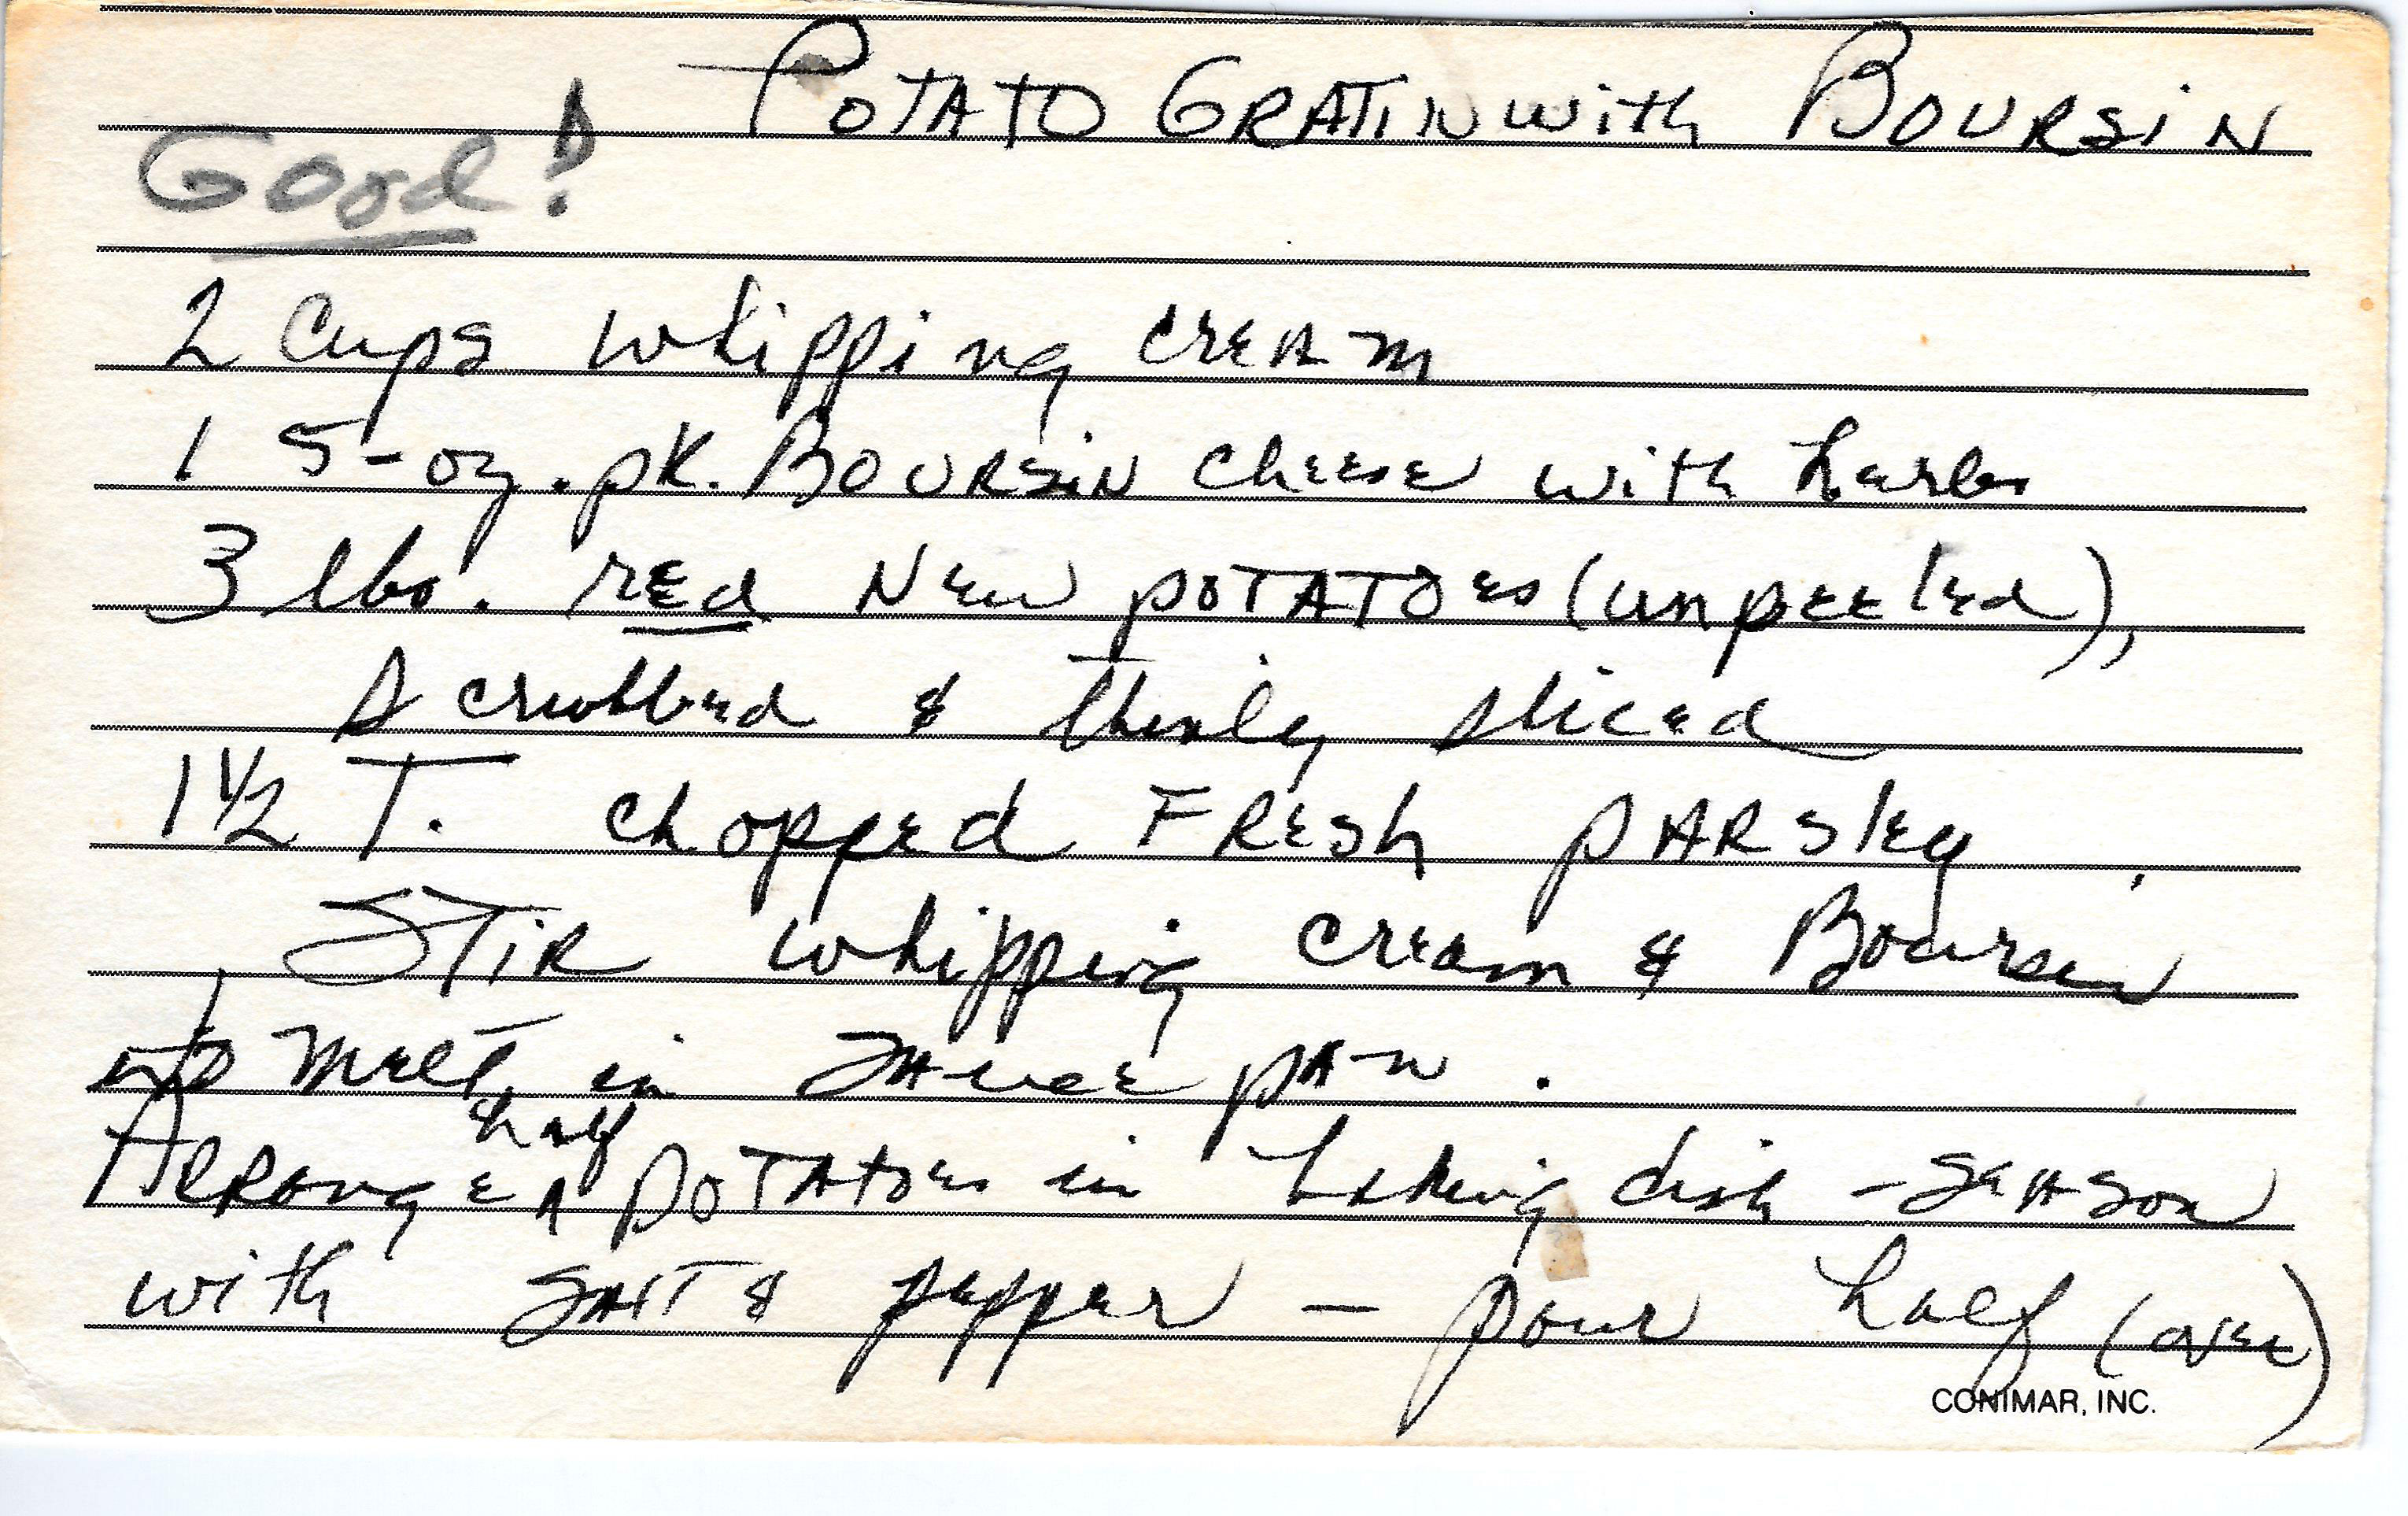 Potato Gratin with Boursin
Good!
2 Cups whipping cream
1 5-oz. pk. Boursin cheese with herbs
3 lbs. red New potatoes (unpeeled),
scrubbed & thinly sliced
1 1/2 T. chopped Fresh parsley
Stir whipping cream & Boursin
to melt in sauce pan.
half
Arrange ^ potatoes in baking dish - season
with salt & pepper - pour half (over)
CONIMAR, INC.